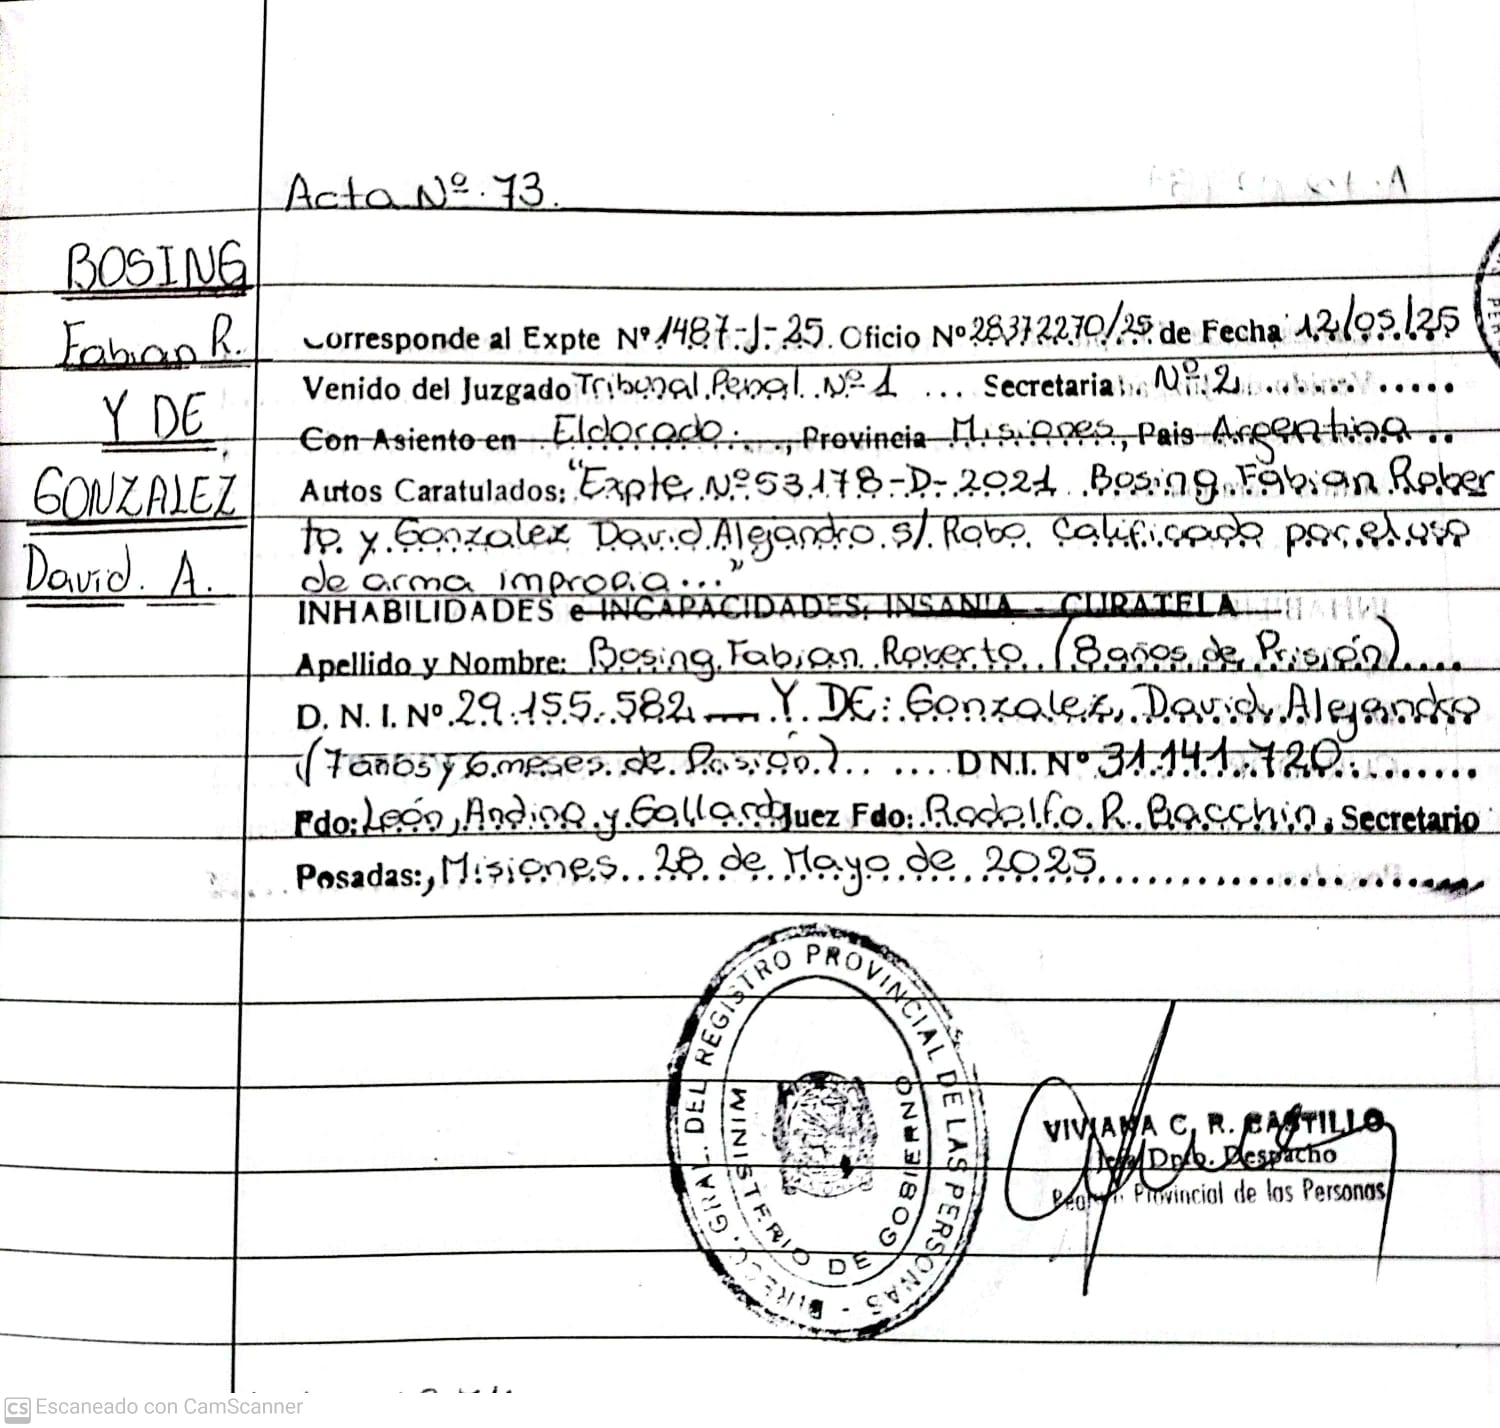 Acta Nº 73.
BOSING
Fabian R.
Y DE
GONZALEZ
David. A.
Corresponde al Expte Nº 1487-J-25. Oficio Nº 28372270/25 de Fecha 12/05/25
Venido del Juzgado Tribunal Penal Nº 1 ... Secretaria Nº 2
Con Asiento en Eldorado, Provincia Misiones, Pais Argentina
Autos Caratulados: "Expte Nº 53178-D-2021 Bosing Fabian Rober
to y Gonzalez David Alejandro s/ Robo Calificado por el uso
de arma impropia..."
INHABILIDADES e INCAPACIDADES, INSANIA - CURATELA
Apellido y Nombre: Bosing Fabian Roberto (8 años de Prisión)
D. N. I. Nº 29.155.582 — Y DE: Gonzalez, David Alejandro
(7 años y 6 meses de Prisión) D N.I. Nº 31.141.720
Fdo: León, Andino y Gallardo Juez Fdo: Rodolfo R. Bacchin, Secretario
Posadas:, Misiones 28 de Mayo de 2025
DIRECC. GRAL. DEL REGISTRO PROVINCIAL DE LAS PERSONAS -
MINISTERIO DE GOBIERNO
VIVIANA C. R. CASTILLO
Jefa Dpto. Despacho
Provincial de las Personas
CS Escaneado con CamScanner